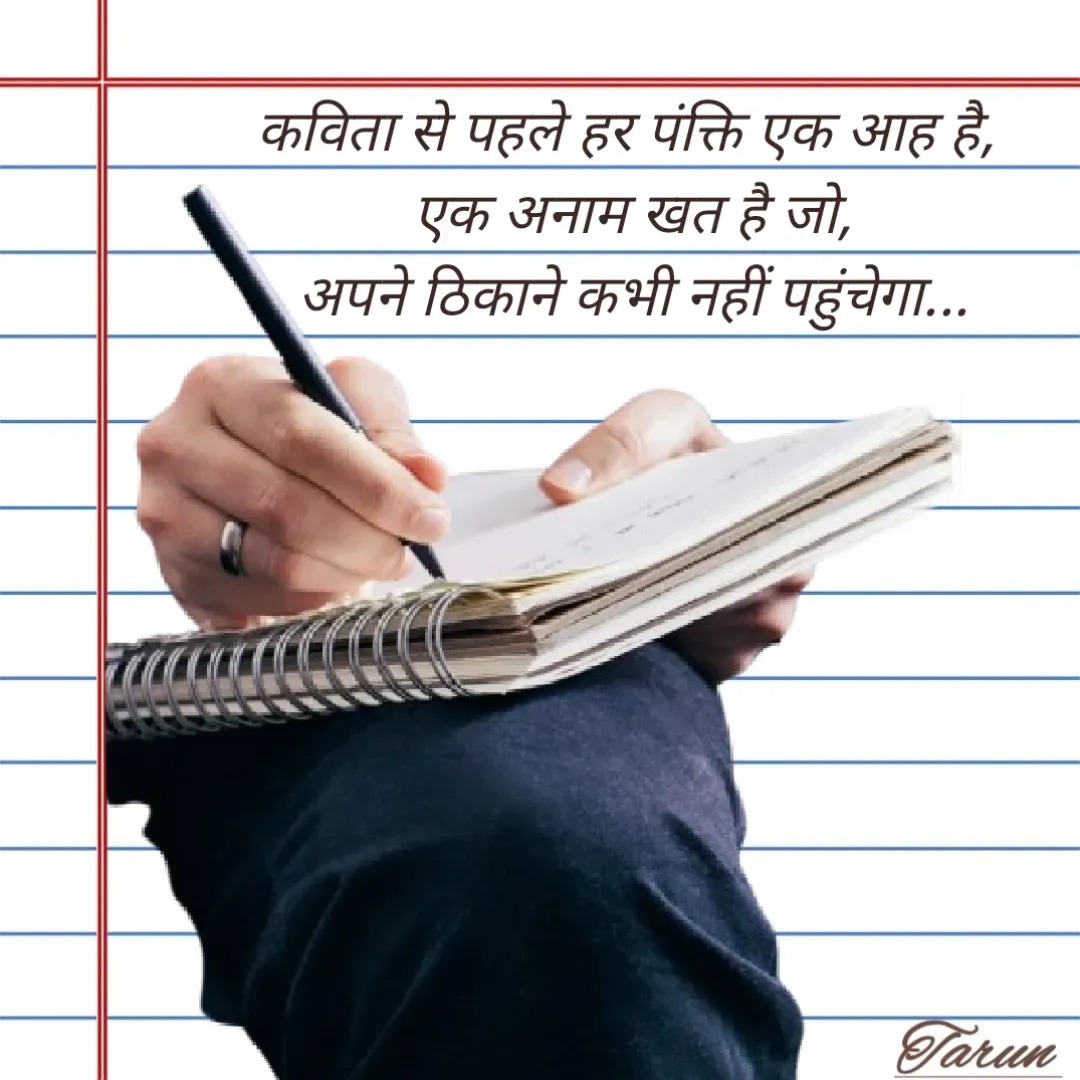 कविता से पहले हर पंक्ति एक आह है,
एक अनाम खत है जो,
अपने ठिकाने कभी नहीं पहुंचेगा...
Tarun